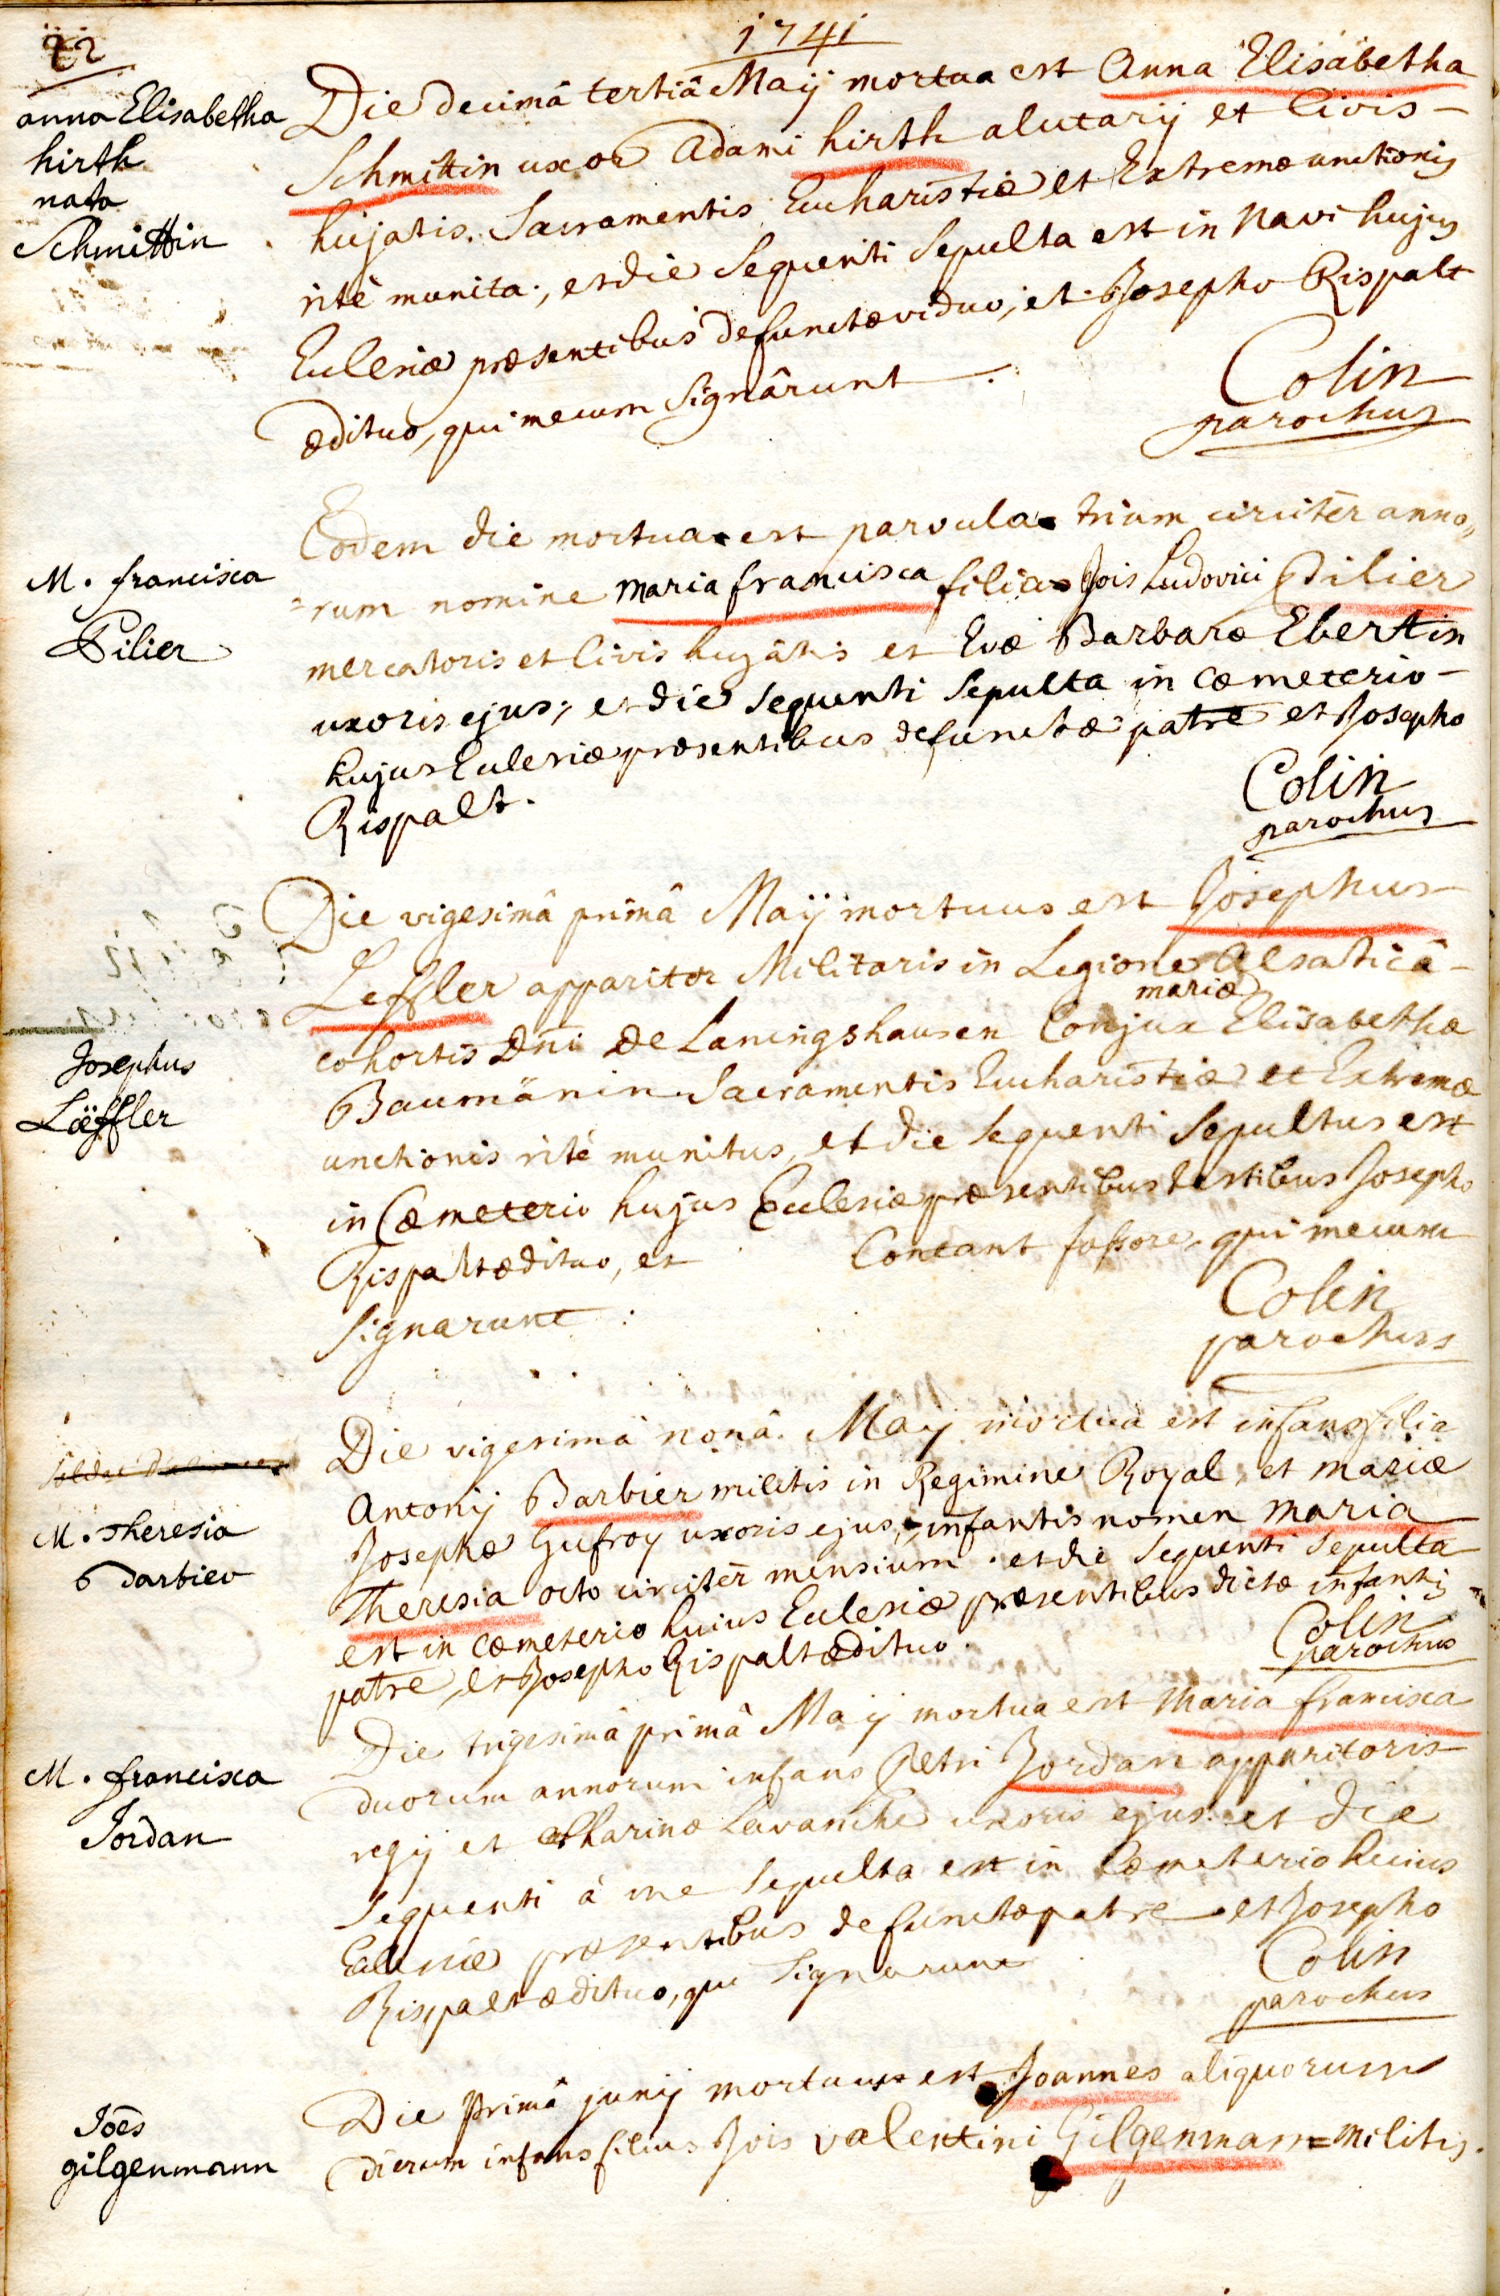 22
1741
anna Elisabetha
hirth
nata
Schmittin
Die decimâ tertiâ Maÿ mortua est Anna Elisabetha
Schmittin uxor Adami hirth alutarÿ et Civis
hujatis. Sacramentis Eucharistiæ et Extremæ unctionis
ritè munita., et die sequenti sepulta est in Navi hujus
Ecclesiæ præsentibus defunctæ viduo, et Josepho Rispalt
ædituo, qui mecum signârunt.
Colin
parochus
M. francisca
Pilier
Eodem die mortua est parvula trium circitèr anno„
=rum nomine Maria francisca filia Jois Ludovici Pilier
mercatoris et Civis hujâtis et Evæ Barbaræ Ebertin
uxoris ejus; et die sequenti sepulta in Cæmeterio
hujus Ecclesiæ præsentibus defunctæ patre et Josepho
Rispalt.
Colin
parochus
Josephus
Löffler
Die vigesimâ primâ Maÿ mortuus est Josephus
Leffler apparitor Militaris in Legione Alsaticâ
mariæ
cohortis Dni De Laningshausen Conjux Elisabethæ
Baumänin Sacramentis Eucharistiæ et Extremæ
unctionis ritè munitus, et die sequenti sepultus est
in Cæmeterio hujus Ecclesiæ præsentibus testibus Josepho
Rispalt ædituo, et Contant fossore, qui mecum
signarunt :
Colin
parochus
M. Theresia
Barbier
Die vigesimâ nonâ. Maÿ mortua est infans filia
Antonÿ Barbier militis in Regimine Royal, et Mariæ
Josephæ Gufroy uxoris ejus, infantis nomen Maria
Theresia octo circitèr mensium . et die sequenti sepulta
est in cæmeterio huius Ecclesiæ præsentibus dictæ infantis
patre, et Josepho Rispalt ædituo.
Colin
parochus
M. francisca
Jordan
Die trigesimâ primâ Maÿ mortua est Maria francisca
duorum annorum infans Petri Jordan apparitoris
regÿ et Catharinæ Lavanche uxoris ejus. et die
sequenti à me sepulta est in Cæmeterio huius
Ecclesiæ præsentibus defunctæ patre et Josepho
Rispalt ædituo, qui signarunt
Colin
parochus
Joēs
gilgenmann
Die Primâ junÿ mortuus est Joannes aliquorum
dierum infans filius Jois valentini Gilgenman=militis.